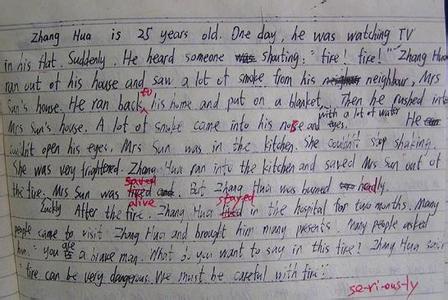 Zhang Hua is 25 years old. One day, he was watching TV
in his flat. Suddenly. He heard someone shouting: "fire! fire!" Zhang Hua
ran out of his house and saw a lot of smoke from his neighbour, Mrs
Sun's house. He ran back to his home and put on a blanket, Then he rushed into
with a lot of water
Mrs Sun's house. A lot of smoke came into his nose and eyes. He
couldn't open his eyes. Mrs Sun was in the kitchen. She couldn't stop shaking.
She was very frightened. Zhang Hua ran into the kitchen and saved Mrs Sun out of
saved
the fire. Mrs Sun was But Zhang Hua was burned badly.
alive stayed
lucky After the fire. Zhang Hua in the hospital for two months. Many
people came to visit Zhang Hua and brought him many presents. Many people asked
are
"you a brave man. What do you want to say in this fire? Zhang Hua said
fire can be very dangerous. We must be careful with fire."
se-ri-ous-ly